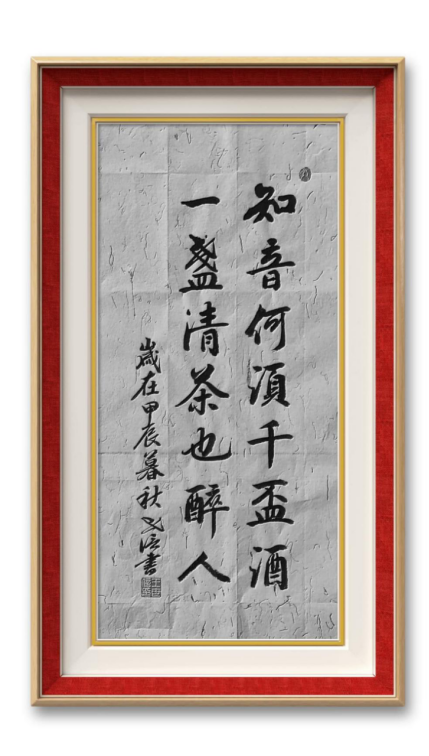 知音何須千盃酒
一盞清茶也醉人
歲在甲辰暮秋書